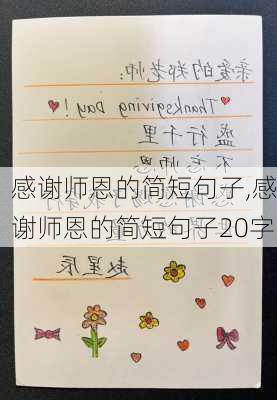 亲爱的郑老师:
Thanksgiving Day!
行千里
不忘师恩
感谢师恩的简短句子,感
谢师恩的简短句子20字
赵星辰